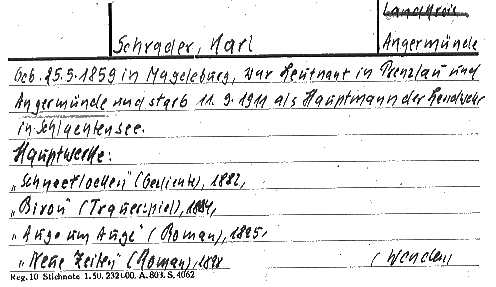 Landkreis
Schrader, Karl
Angermünde
Geb. 25.5.1859 in Magdeburg, war Leutnant in Prenzlau und
Angermünde und starb 11.9.1911 als Hauptmann der Landwehr
in Schlachtensee.
Hauptwerke:
„Schneeflocken" (Gedichte), 1882,
„Biron" (Trauerspiel), 1884,
„Auge um Auge" (Roman), 1895,
„Neue Zeiten" (Roman) 1898
(Wenden)
Reg. 10 Stichnote 1. 50. A. 803. S. 4062